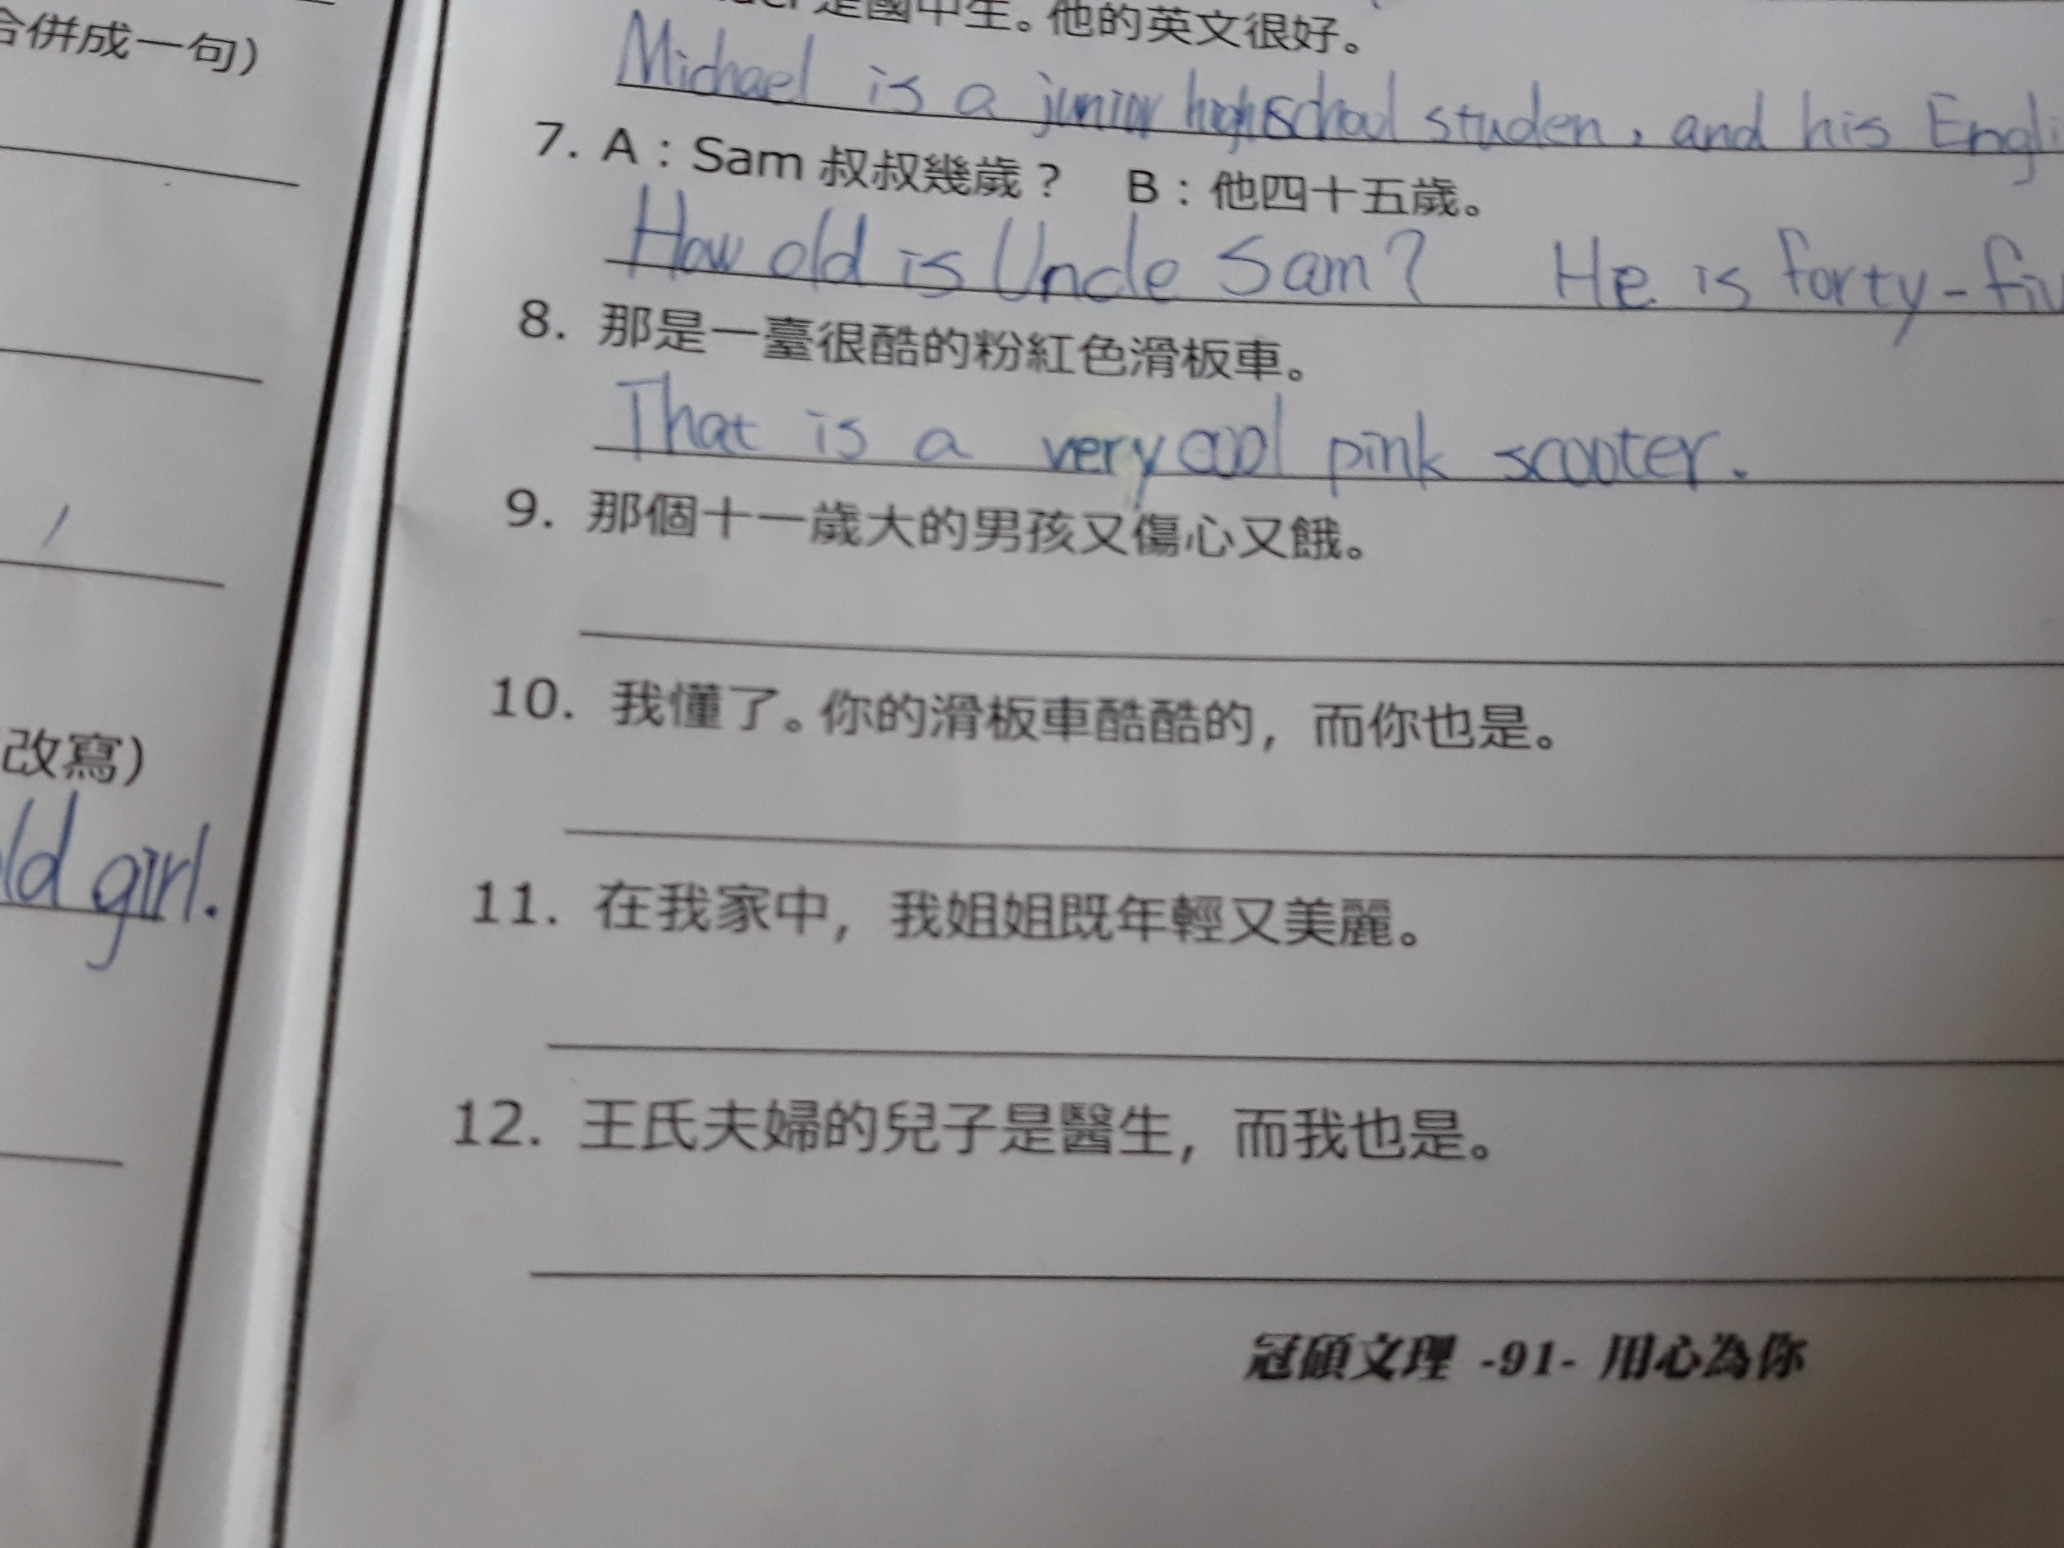 合併成一句)
是國中生。他的英文很好。
Michael is a junior high school studen, and his Engli
7. A：Sam 叔叔幾歲？ B：他四十五歲。
How old is Uncle Sam? He is forty-fiv
8. 那是一臺很酷的粉紅色滑板車。
That is a very cool pink scooter.
9. 那個十一歲大的男孩又傷心又餓。
10. 我懂了。你的滑板車酷酷的，而你也是。
改寫)
ld girl.
11. 在我家中，我姐姐既年輕又美麗。
12. 王氏夫婦的兒子是醫生，而我也是。
冠碩文理 -91- 用心為你